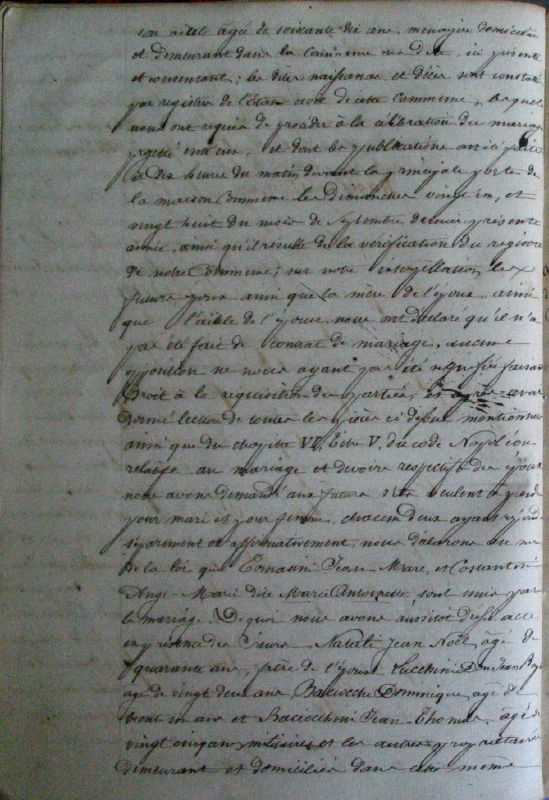 son aïeule âgée de soixante dix ans, menagère domiciliée
et demeurant dans la Commune sus dite, ici présente
et consentant, les dites naissances et décès sont constatés
par registres de l'état civil de cette Commune, lesquels
nous ont requis de procéder à la célébration du mariage
projetté entr'eux, et dont les publications ont été faites
à dix heures du matin devant la principale porte de
la maison Commune les dimanches vingt un, et
vingt huit du mois de Septembre dernier, présente
année, ainsi qu'il résulte de la vérification du registre
de notre Commune; sur notre interpellation, les
futurs époux ainsi que la mère de l'époux, ainsi
que l'aïeule de l'épouse, nous ont déclaré qu'il n'a
pas été fait de contrat de mariage, aucune
opposition ne nous ayant pas été signifiée faisant
droit à la requisition des parties, et après avoir
donné lecture de toutes les pièces ci dessus mentionnées
ainsi que du chapitre VI, titre V. du code Napoléon
relatif au mariage et devoirs respectifs des époux
nous avons demandé aux futurs s'ils veulent se prendre
pour mari et pour femme, chacun deux ayant répondu
séparement et affirmativement, nous déclarons au nom
de la loi que Tomasini Jean Marc, et Costantini
Angi-Marie dite Marie Antoinette sont unis par
le mariage. De quoi nous avons aussitôt dressé acte
en présence des Sieurs Natali Jean Noël, agé de
quarante ans, frère de l'épouse, Lucchini Don Jean
agé de vingt deux ans Baciocchi Dominique, agé de
trent un ans et Baciocchini Jean-Thomas, âgé de
vingt cinq ans militaires et les autres propriétaires
demeurant et domiciliés dans cette même